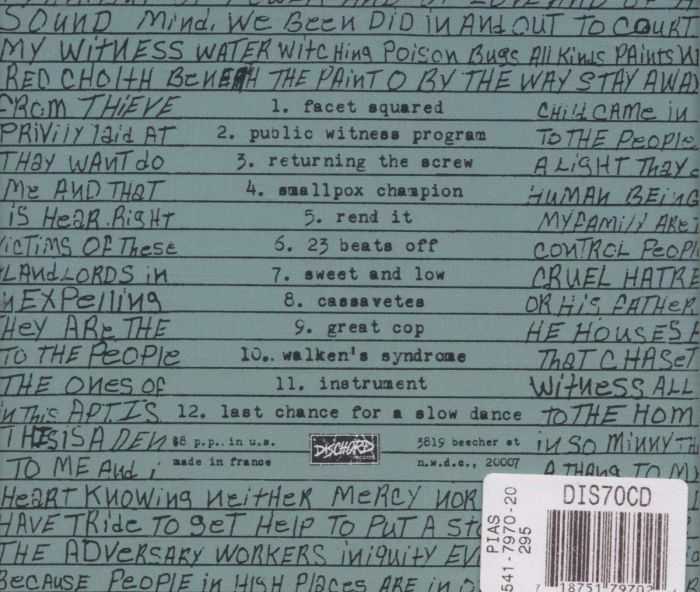 SOUND MIND, WE BEEN DID IN AND OUT TO COURT
MY WITNESS WATER WITCHING POISON BUGS ALL KINDS PAINTS
RED CHOLTH BENEATH THE PAINT O BY THE WAY STAY AWA
FROM THIEVE 1. facet squared CHILD CAME IN
PRIVILY LAID AT 2. public witness program TO THE PEOPLE
THAY WANT DO 3. returning the screw A LIGHT THAY
ME AND THAT 4. smallpox champion HUMAN BEING
IS HEAR. RIGHT 5. rend it MY FAMILY ARE
VICTIMS OF THESE 6. 23 beats off CONTROL PEOP
LANDLORDS IN 7. sweet and low CRUEL HATRE
EXPELLING 8. cassavetes OR HIS FATHER
HEY ARE THE 9. great cop HE HOUSES
TO THE PEOPLE 10. walken's syndrome THAT CHASE
THE ONES OF 11. instrument WITNESS ALL
IN THIS APT. IS 12. last chance for a slow dance TO THE HOM
THIS IS A DEN $8 p.p. in u.s. DISCHORD records 3819 beecher st IN SO MINNY TH
TO ME AND i made in france n.w.d.c., 20007 A THANG TO M
HEART KNOWING NEITHER MERCY NOR
HAVE TRIDE TO GET HELP TO PUT A STO
THE ADVERSARY WORKERS INIQUITY EV
BECAUSE PEOPLE IN HIGH PLACES ARE IN
DIS70CD
PIAS
541-7970-20
295
7 18751 79702